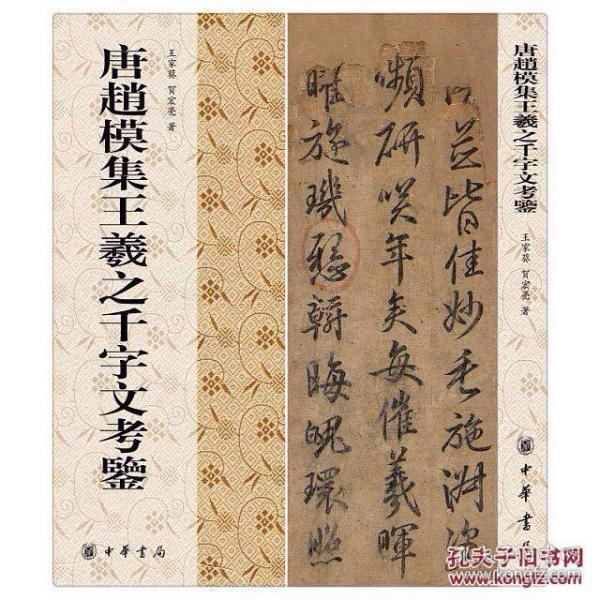 唐趙模集王羲之千字文考鑒
王家葵 賀宏亮 著
中華書局
以並皆佳妙毛施淑姿
嚬研咲年矢每催羲暉
曜旋璣懸斡晦魄環照
唐趙模集王羲之千字文考鑒
王家葵 賀宏亮 著
中華書局
孔夫子旧书网
www.kongfz.com